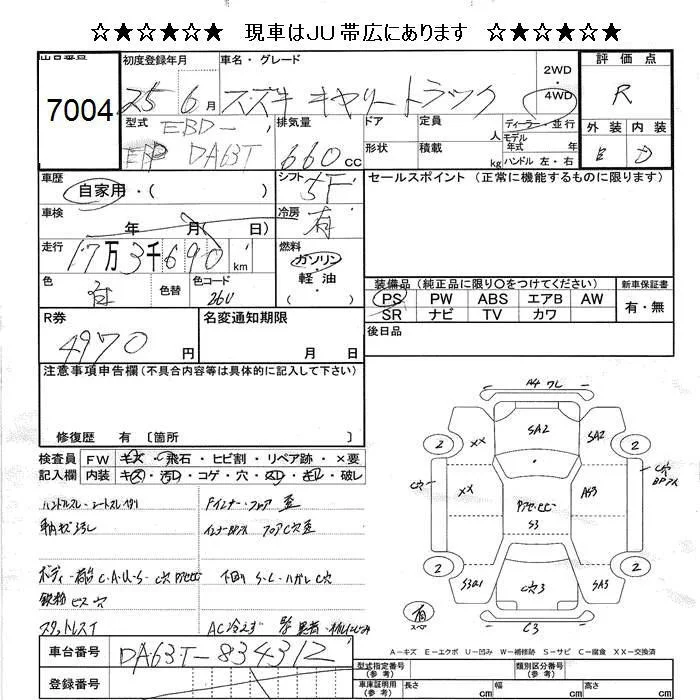 ☆★☆★☆ 現車はＪＵ帯広にあります ☆★☆★☆
出品番号 初度登録年月 車名・グレード 2WD 4WD 評価点
7004 25 6月 スズキ キャリートラック R
型式 EBD- DA63T 排気量 660 CC ドア 定員 人 ディーラー・並行 外装 内装
形状 積載 kg モデル年式 年 ハンドル 左・右 E D
車歴 自家用・( ) シフト 5F セールスポイント (正常に機能するものに限ります)
車検 年 月( 日) 冷房 有
走行 17万3千690 km 燃料 ガソリン・軽油・( )
色 色替 色コード 26U
装備品 (純正品に限り○をつけてください) 新車保証書
PS PW ABS エアB AW 有・無
SR ナビ TV カワ
R券 4970 円 名変通知期限 月 日 後日品
注意事項申告欄 (不具合内容等は具体的に記入して下さい)
修復歴 有 〔箇所 〕
検査員 FW キズ・飛石・ヒビ割・リペア跡・×要
記入欄 内装 キズ・汚レ・コゲ・穴・スレ・キレ・破レ
ハンドルスレ・シートスレ切れ Fインナー・フロア 歪
インナーBPアス フロアC穴歪
ボディー・荷台 C.A.U.S- C穴 下回り S-L-ハガレ C穴
鉄粉 ビス穴
スタットレスT AC冷えず
A4 ワレ
XX SA2 SA2
2 2
C穴 XX AS3 C穴 BPアス
S3
2 2
C穴3 SA3
有 スペア C3
A－キズ E－エクボ U－凹み W－補修跡 S－サビ C－腐食 XX－交換済
車台番号 DA63T-834312
登録番号
型式指定番号 (参考) 類別区分番号 (参考)
車庫証明用 (参考) 長さ cm 幅 cm 高さ cm